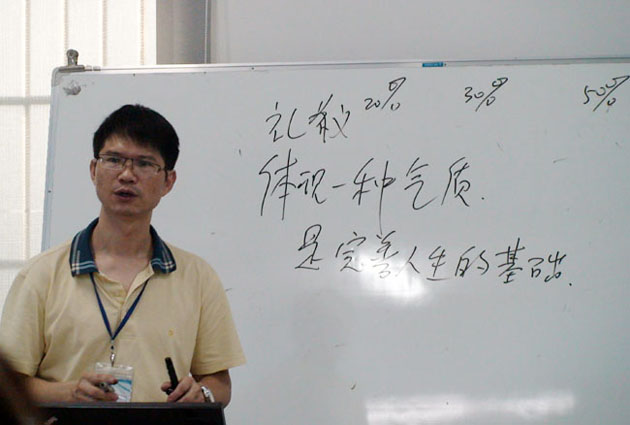 礼教 20% 30% 50%
体视一种气质.
是完善人生的基础.